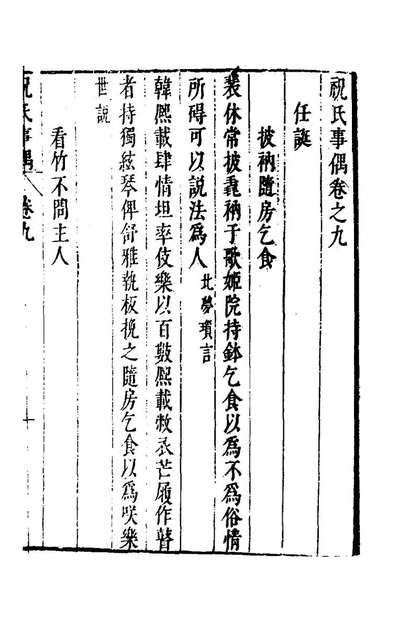 祝氏事偶卷之九
任誕
披衲隨房乞食
裴休常披毳衲于歌姬院持鉢乞食以為不為俗情
所碍可以説法為人北夢瑣言
韓熈載肆情坦率伎樂以百數熈載敝衣芒履作瞽
者持獨絃琴俾舒雅執板挽之隨房乞食以為咲樂
世説
看竹不問主人
祝氏事偶
卷九